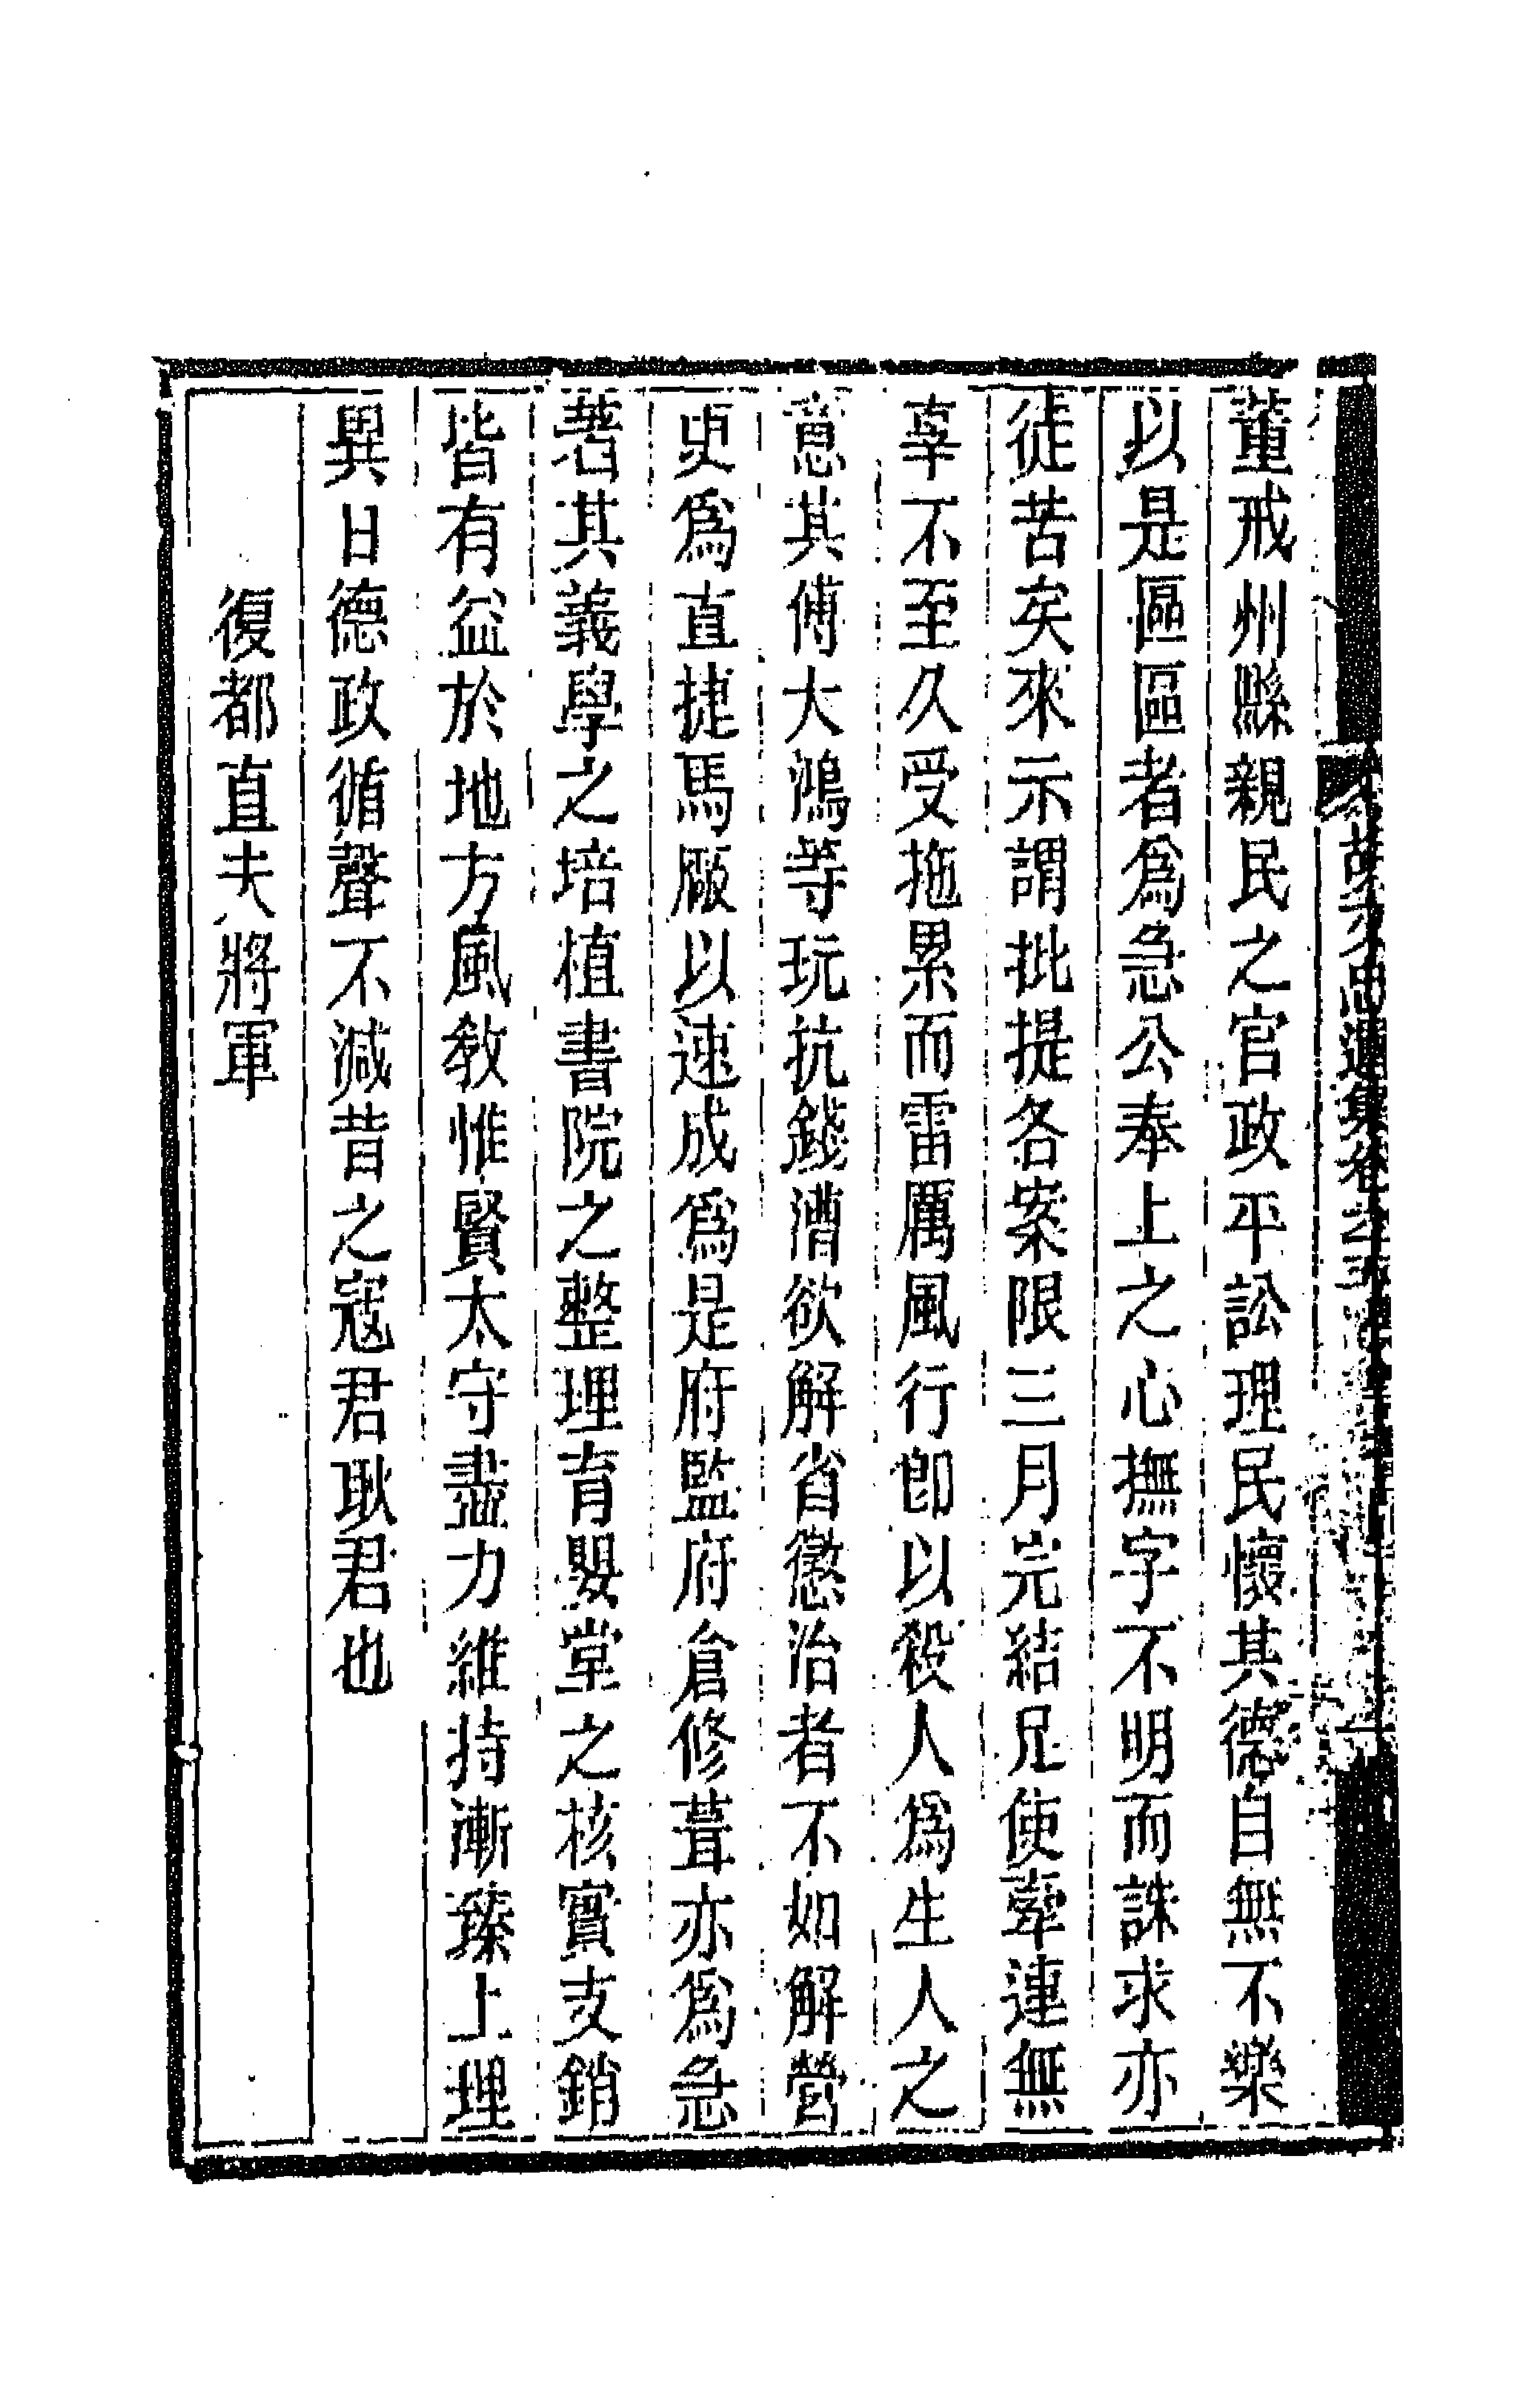 董戒州縣親民之官政平訟理民懷其德自無不樂
以是區區者爲急公奉上之心撫字不明而誅求亦
徒苦矣來示謂批提各案限三月完結足使牽連無
辜不至久受拖累而雷厲風行卽以殺人爲生人之
意其傅大鴻等玩抗錢漕欲解省懲治者不如解營
更爲直捷馬廠以速成爲是府監府倉修葺亦爲急
著其義學之培植書院之整理育嬰堂之核實支銷
皆有益於地方風敎惟賢太守盡力維持漸臻上理
異日德政循聲不減昔之寇君耿君也
復都直夫將軍